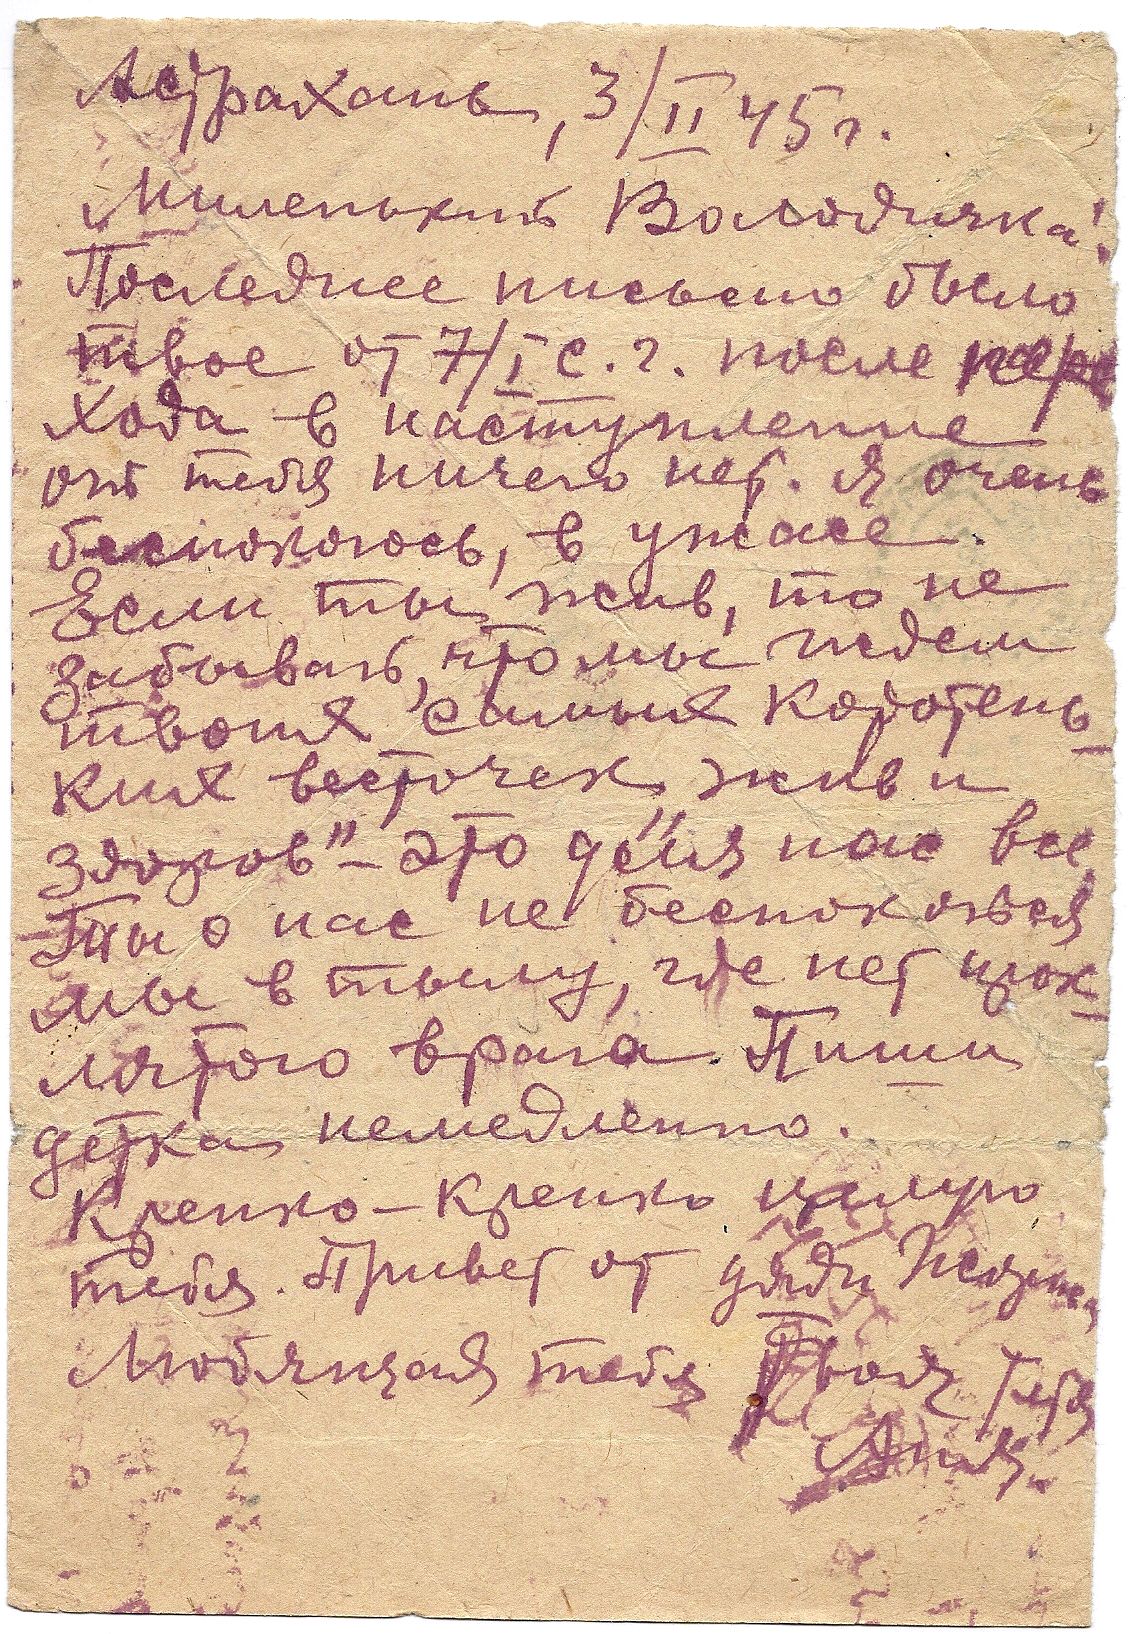 Астрахань, 3/II 45 г.
Миленький Володичка!
Последнее письмо было
твое от 7/I с. г. после пере
хода в наступление
от тебя ничего нет. Я очень
беспокоюсь, в ужасе.
Если ты жив, то не
забывай, что мы ждем
твоих самых коротень-
ких весточек „жив и
здоров"– это для нас все.
Ты о нас не беспокойся
мы в тылу, где нет прок-
лятого врага. Пиши
детка немедленно.
Крепко–крепко целую
тебя. Привет от дяди
Любящая тебя Твоя тетя
Аня.